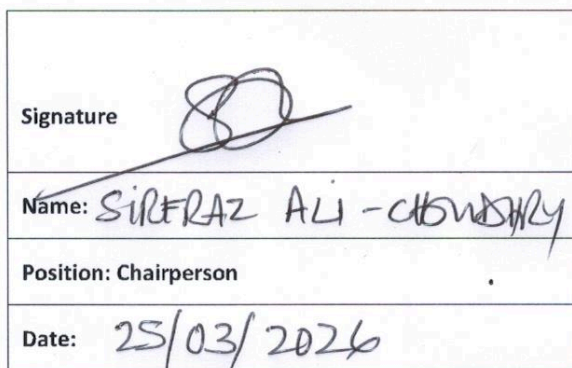 Signature
Name: SIRFRAZ ALI - CHOWDHRY
Position: Chairperson
Date: 25/03/2026